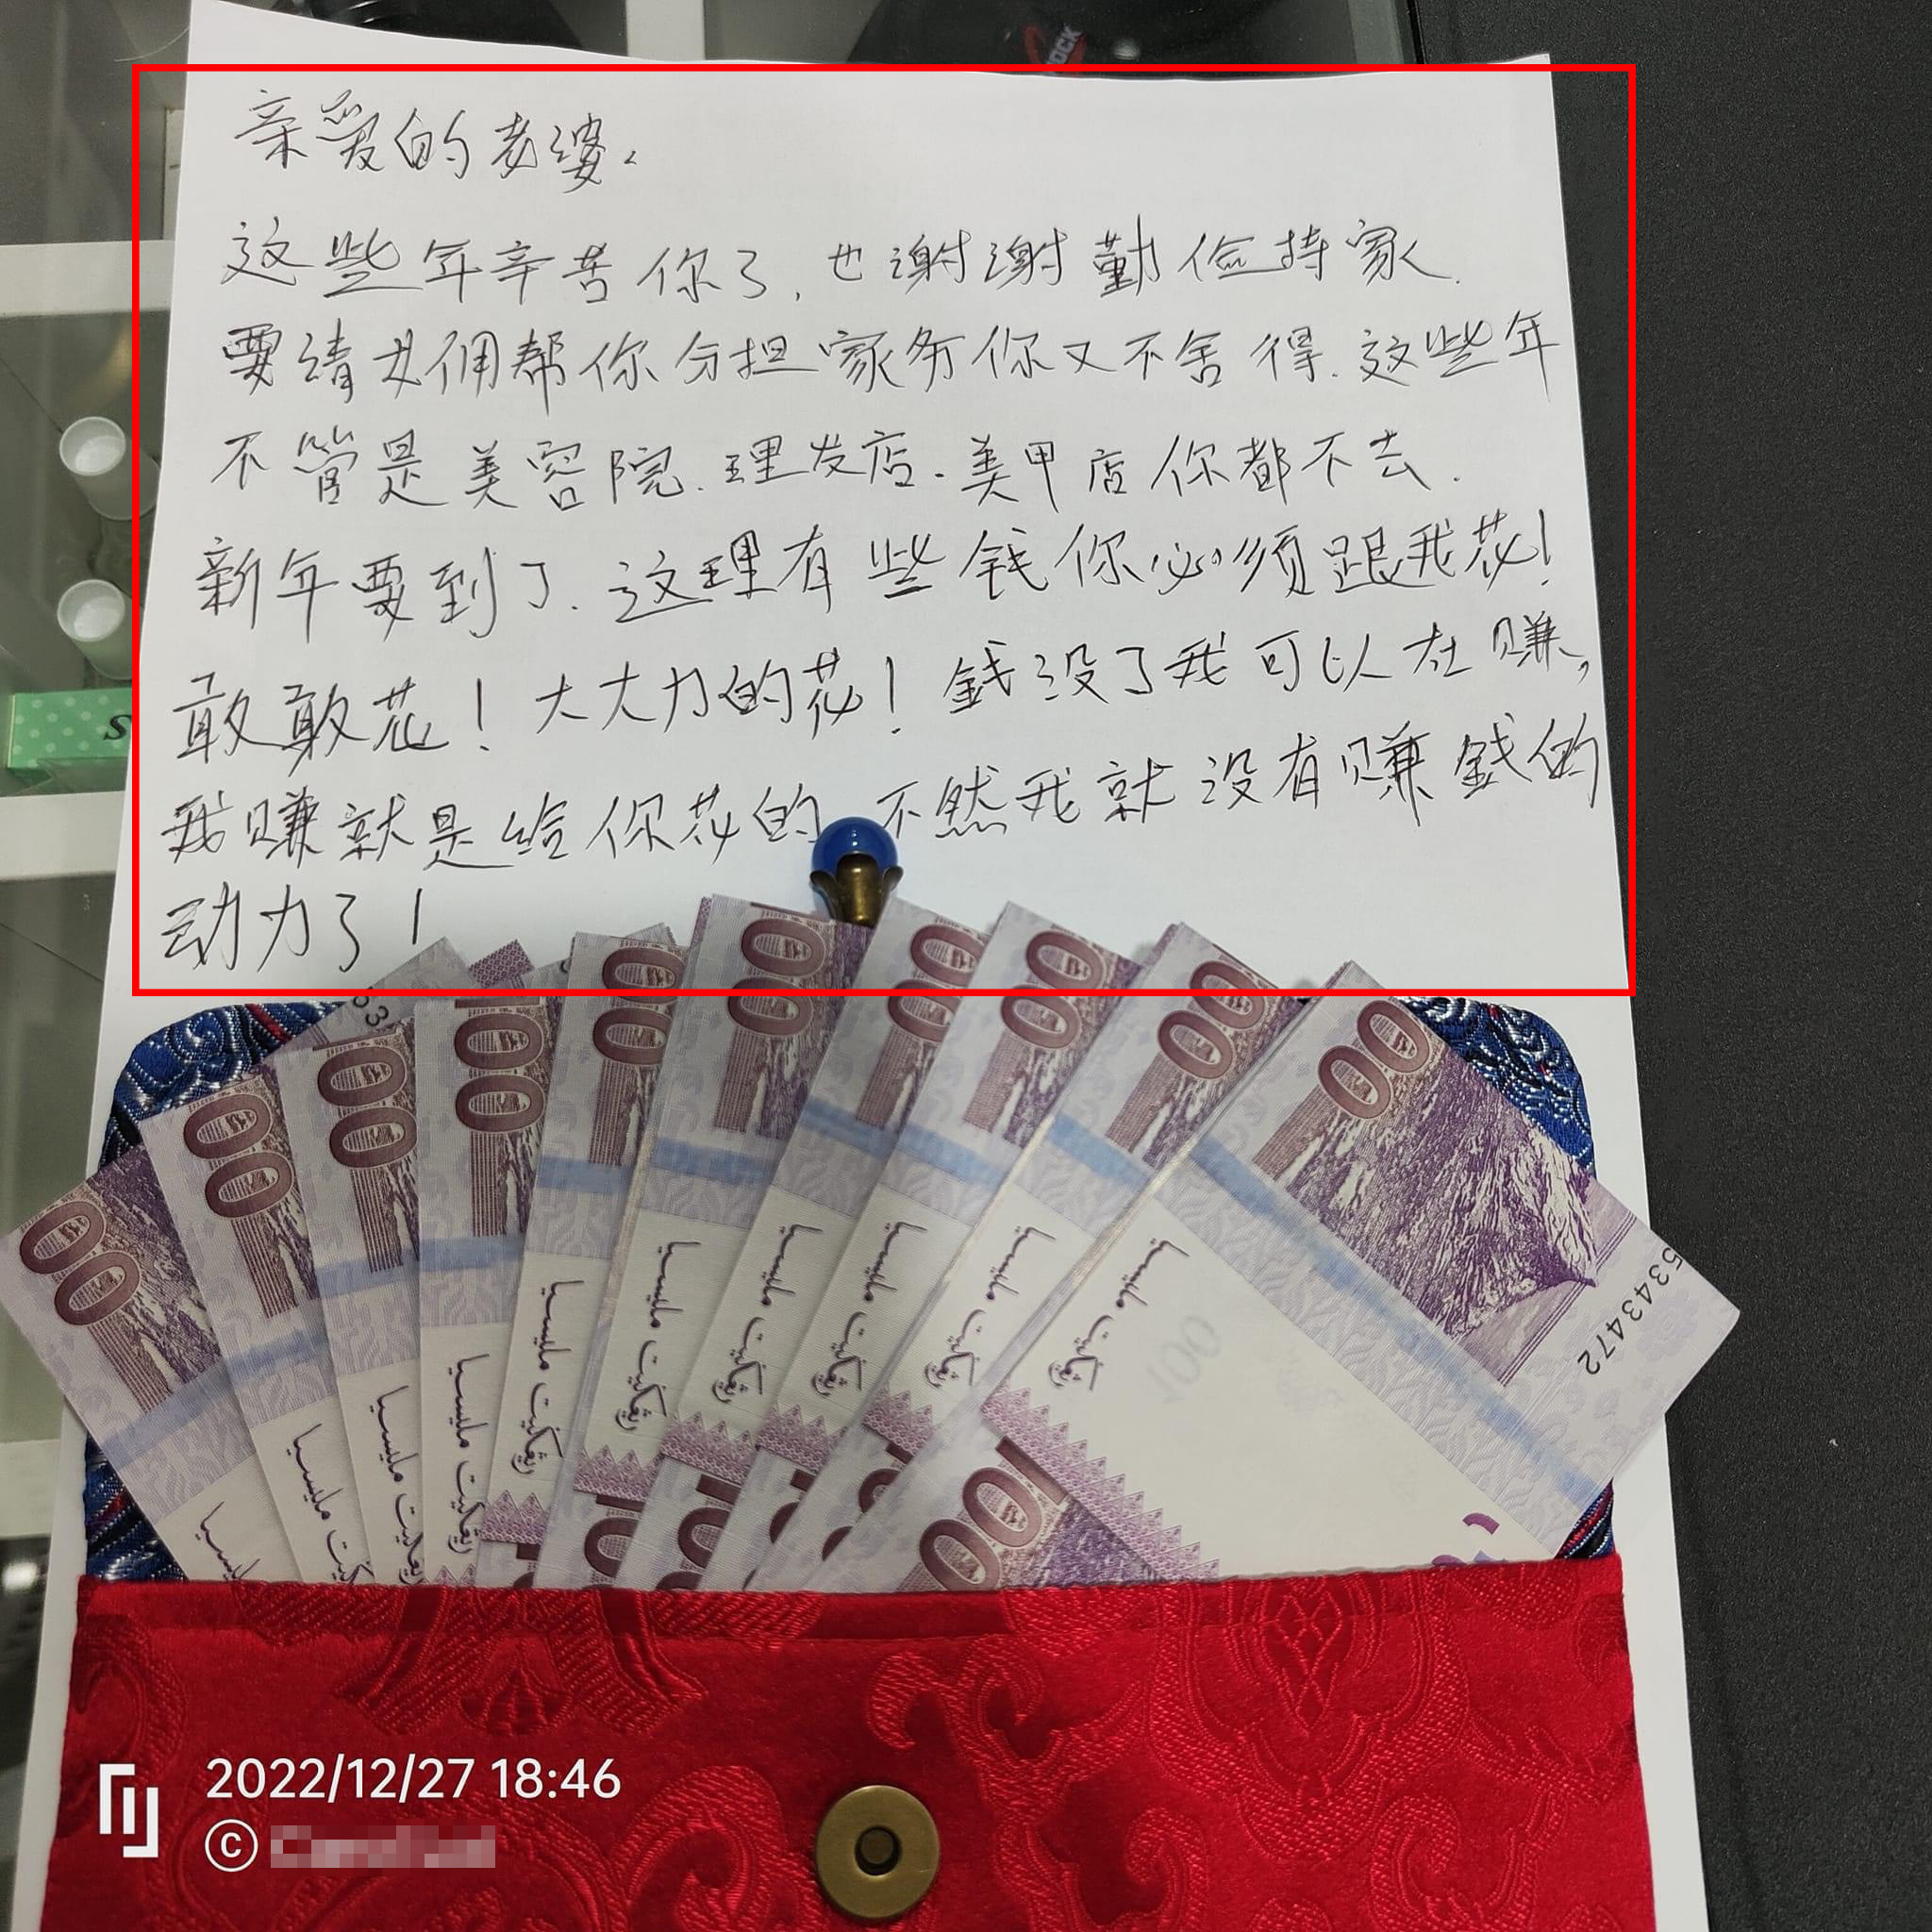 OCK
亲爱的老婆.
这些年辛苦你了,也谢谢勤俭持家.
要请女佣帮你分担家务你又不舍得.这些年
不管是美容院.理发店.美甲店你都不去.
新年要到了.这理有些钱你必须跟我花!
敢敢花!大大力的花!錢没了我可以在赚,
我赚就是给你花的 不然我就没有赚錢的
动力了!
S
00
00
100
100
00
00
00
00
00
00
5343472
رڠݢيت مليسيا
رڠݢيت مليسيا
رڠݢيت مليسيا
رڠݢيت مليسيا
رڠݢيت مليسيا
رڠݢيت مليسيا
100
2022/12/27 18:46
©